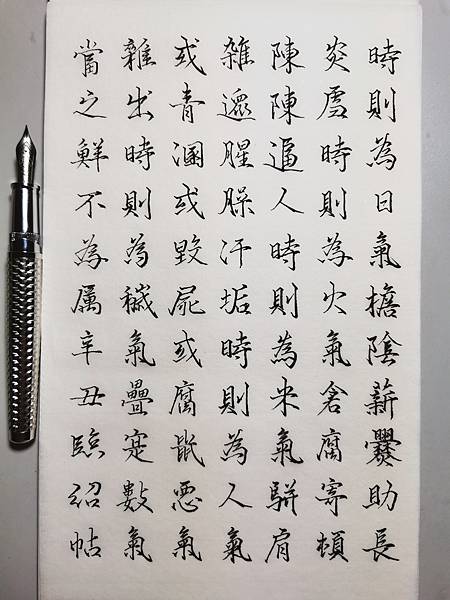 時則為日氣檐陰薪爨助長
炎虐時則為火氣倉腐寄頓
陳陳逼人時則為米氣駢肩
雜遝腥臊汗垢時則為人氣
或青溷或毀屍或腐鼠惡氣
雜出時則為穢氣疊寔數氣
當之鮮不為厲辛丑臨紹帖